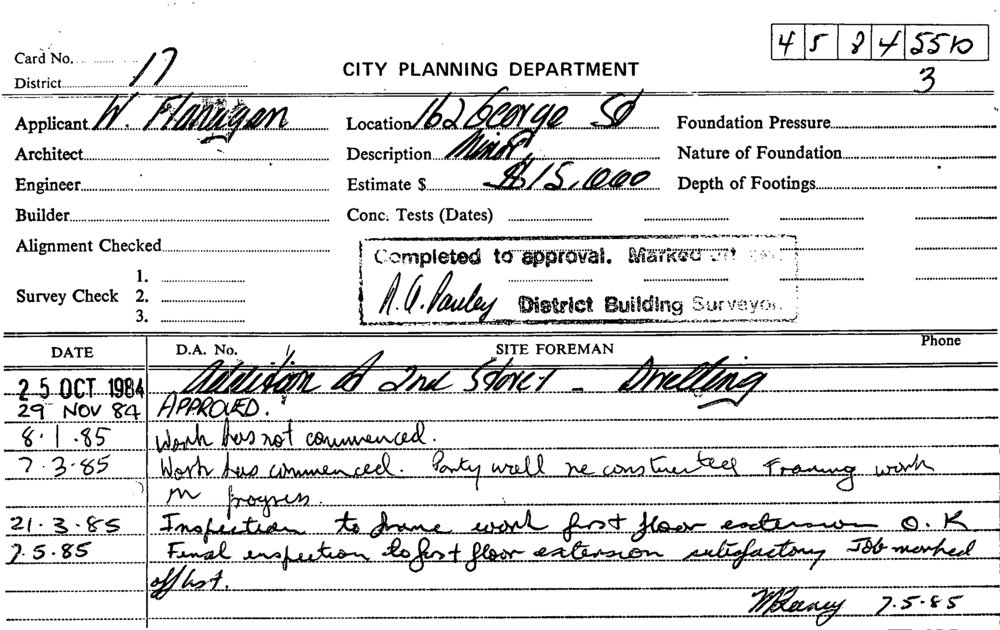 4 5 8 4 55D
3
Card No.
District 17
CITY PLANNING DEPARTMENT
Applicant W. Flanigan Location 162 George St Foundation Pressure
Architect Description Minor Nature of Foundation
Engineer Estimate $ $15,000 Depth of Footings
Builder Conc. Tests (Dates)
Alignment Checked
Completed to approval. Marked off
Survey Check 1.
2.
3.
District Building Surveyor.
DATE D.A. No. SITE FOREMAN Phone
25 OCT 1984 Addition at 2nd Storey - Dwelling
29 NOV 84 APPROVED.
8.1.85 Work has not commenced.
7.3.85 Work has commenced. Party wall reconstructed Framing work
in progress.
21.3.85 Inspection to frame work first floor extension O.K
7.5.85 Final inspection to first floor extension satisfactory Job marked
off list.
7.5.85